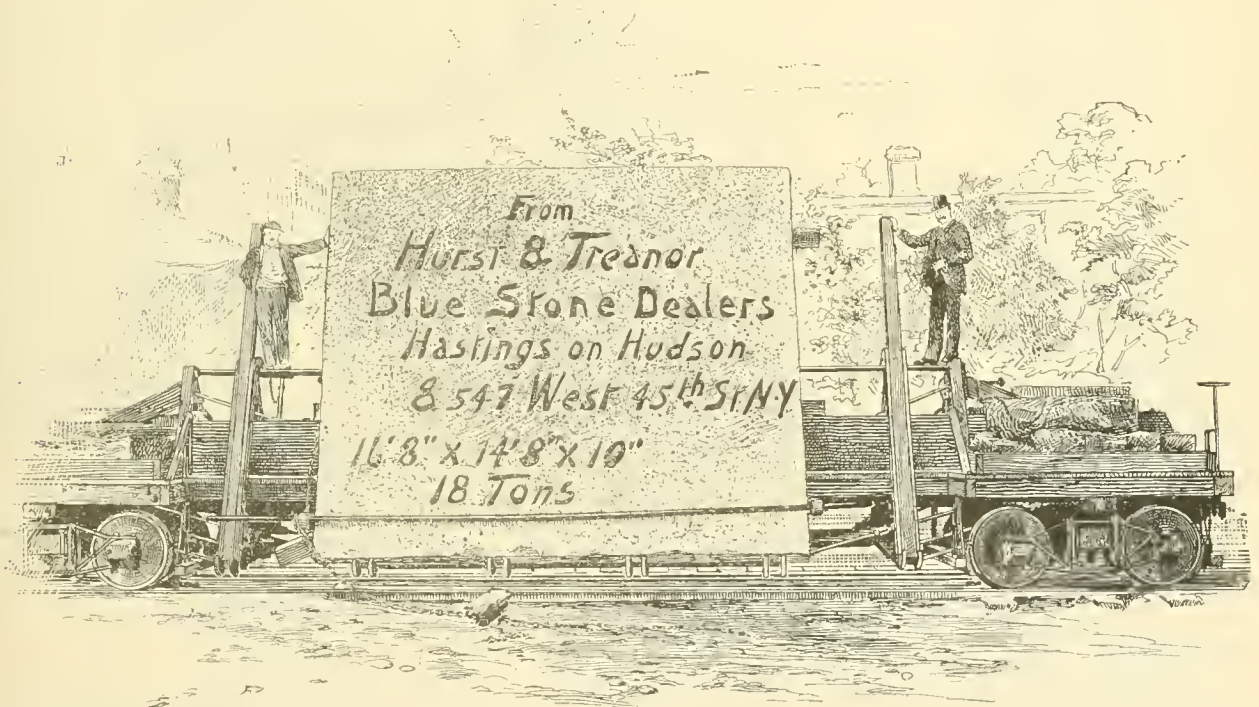 From
Hurst & Treanor
Blue Stone Dealers
Hastings on Hudson
& 547 West 45th St N.Y
16'8" x 14'8" x 10"
18 Tons